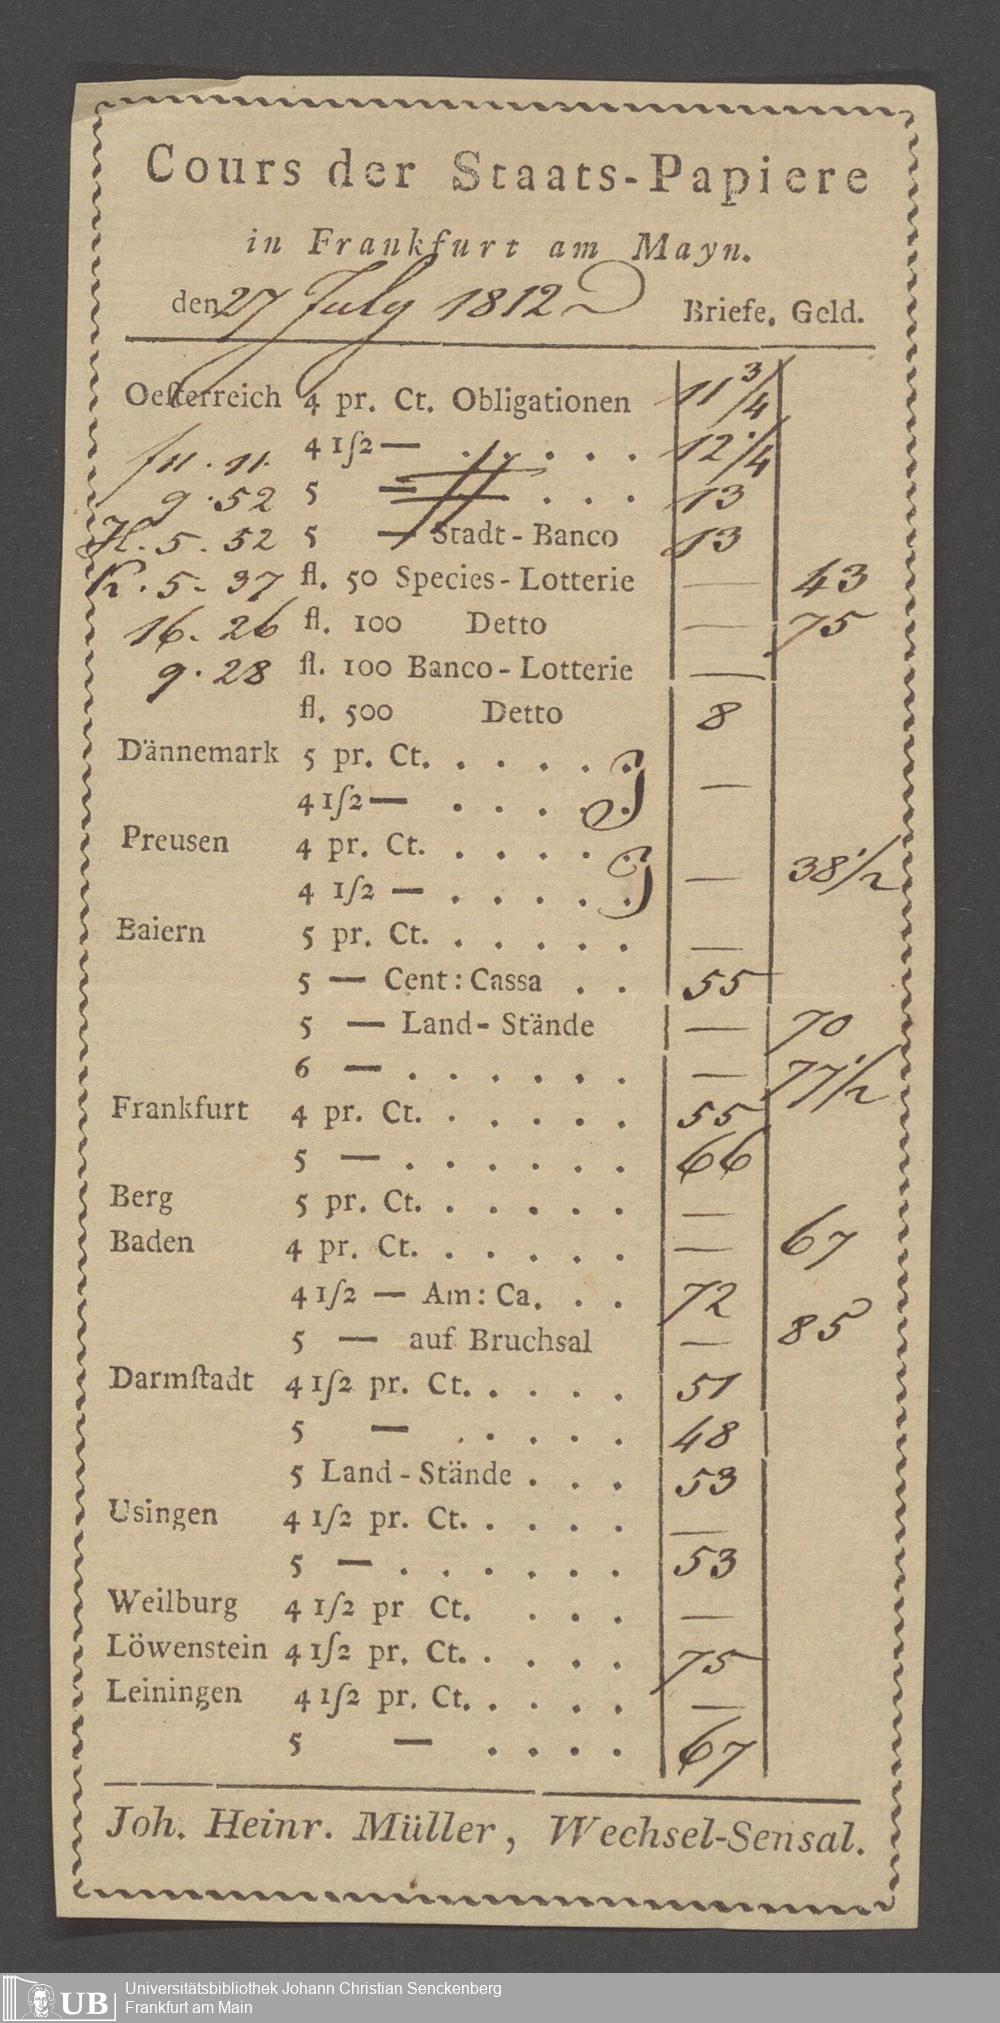 Cours der Staats-Papiere
in Frankfurt am Mayn.
den 27 July 1812 Briefe. Geld.
Oeſterreich 4 pr. Ct. Obligationen 11 3/4
4 1ſ2 — . . . . . 12 1/4
11. 11.
5 — . . . 13
9. 52
5 — Stadt-Banco 13
H. 5. 52
fl. 50 Species-Lotterie — 43
R. 5. 37
fl. 100 Detto — 75
16. 26
fl. 100 Banco-Lotterie —
9. 28
fl. 500 Detto 8
Dännemark 5 pr. Ct. . . . . .
4 1ſ2 — . . . . . —
Preusen 4 pr. Ct. . . . . .
4 1ſ2 — . . . . . — 38 1/2
Baiern 5 pr. Ct. . . . . . —
5 — Cent: Cassa . . 55
5 — Land-Stände — 70
6 — . . . . . . — 77 1/2
Frankfurt 4 pr. Ct. . . . . . 55
5 — . . . . . . 66
Berg 5 pr. Ct. . . . . . —
Baden 4 pr. Ct. . . . . . — 67
4 1ſ2 — Am: Ca. . . 72
5 — auf Bruchsal — 85
Darmſtadt 4 1ſ2 pr. Ct. . . . . 51
5 — . . . . . 48
5 Land-Stände . . . 53
Usingen 4 1ſ2 pr. Ct. . . . . —
5 — . . . . . . 53
Weilburg 4 1ſ2 pr Ct. . . . —
Löwenstein 4 1ſ2 pr. Ct. . . . . 75
Leiningen 4 1ſ2 pr. Ct. . . . . —
5 — . . . . 67
Joh. Heinr. Müller, Wechsel-Sensal.
UB
Universitätsbibliothek Johann Christian Senckenberg
Frankfurt am Main